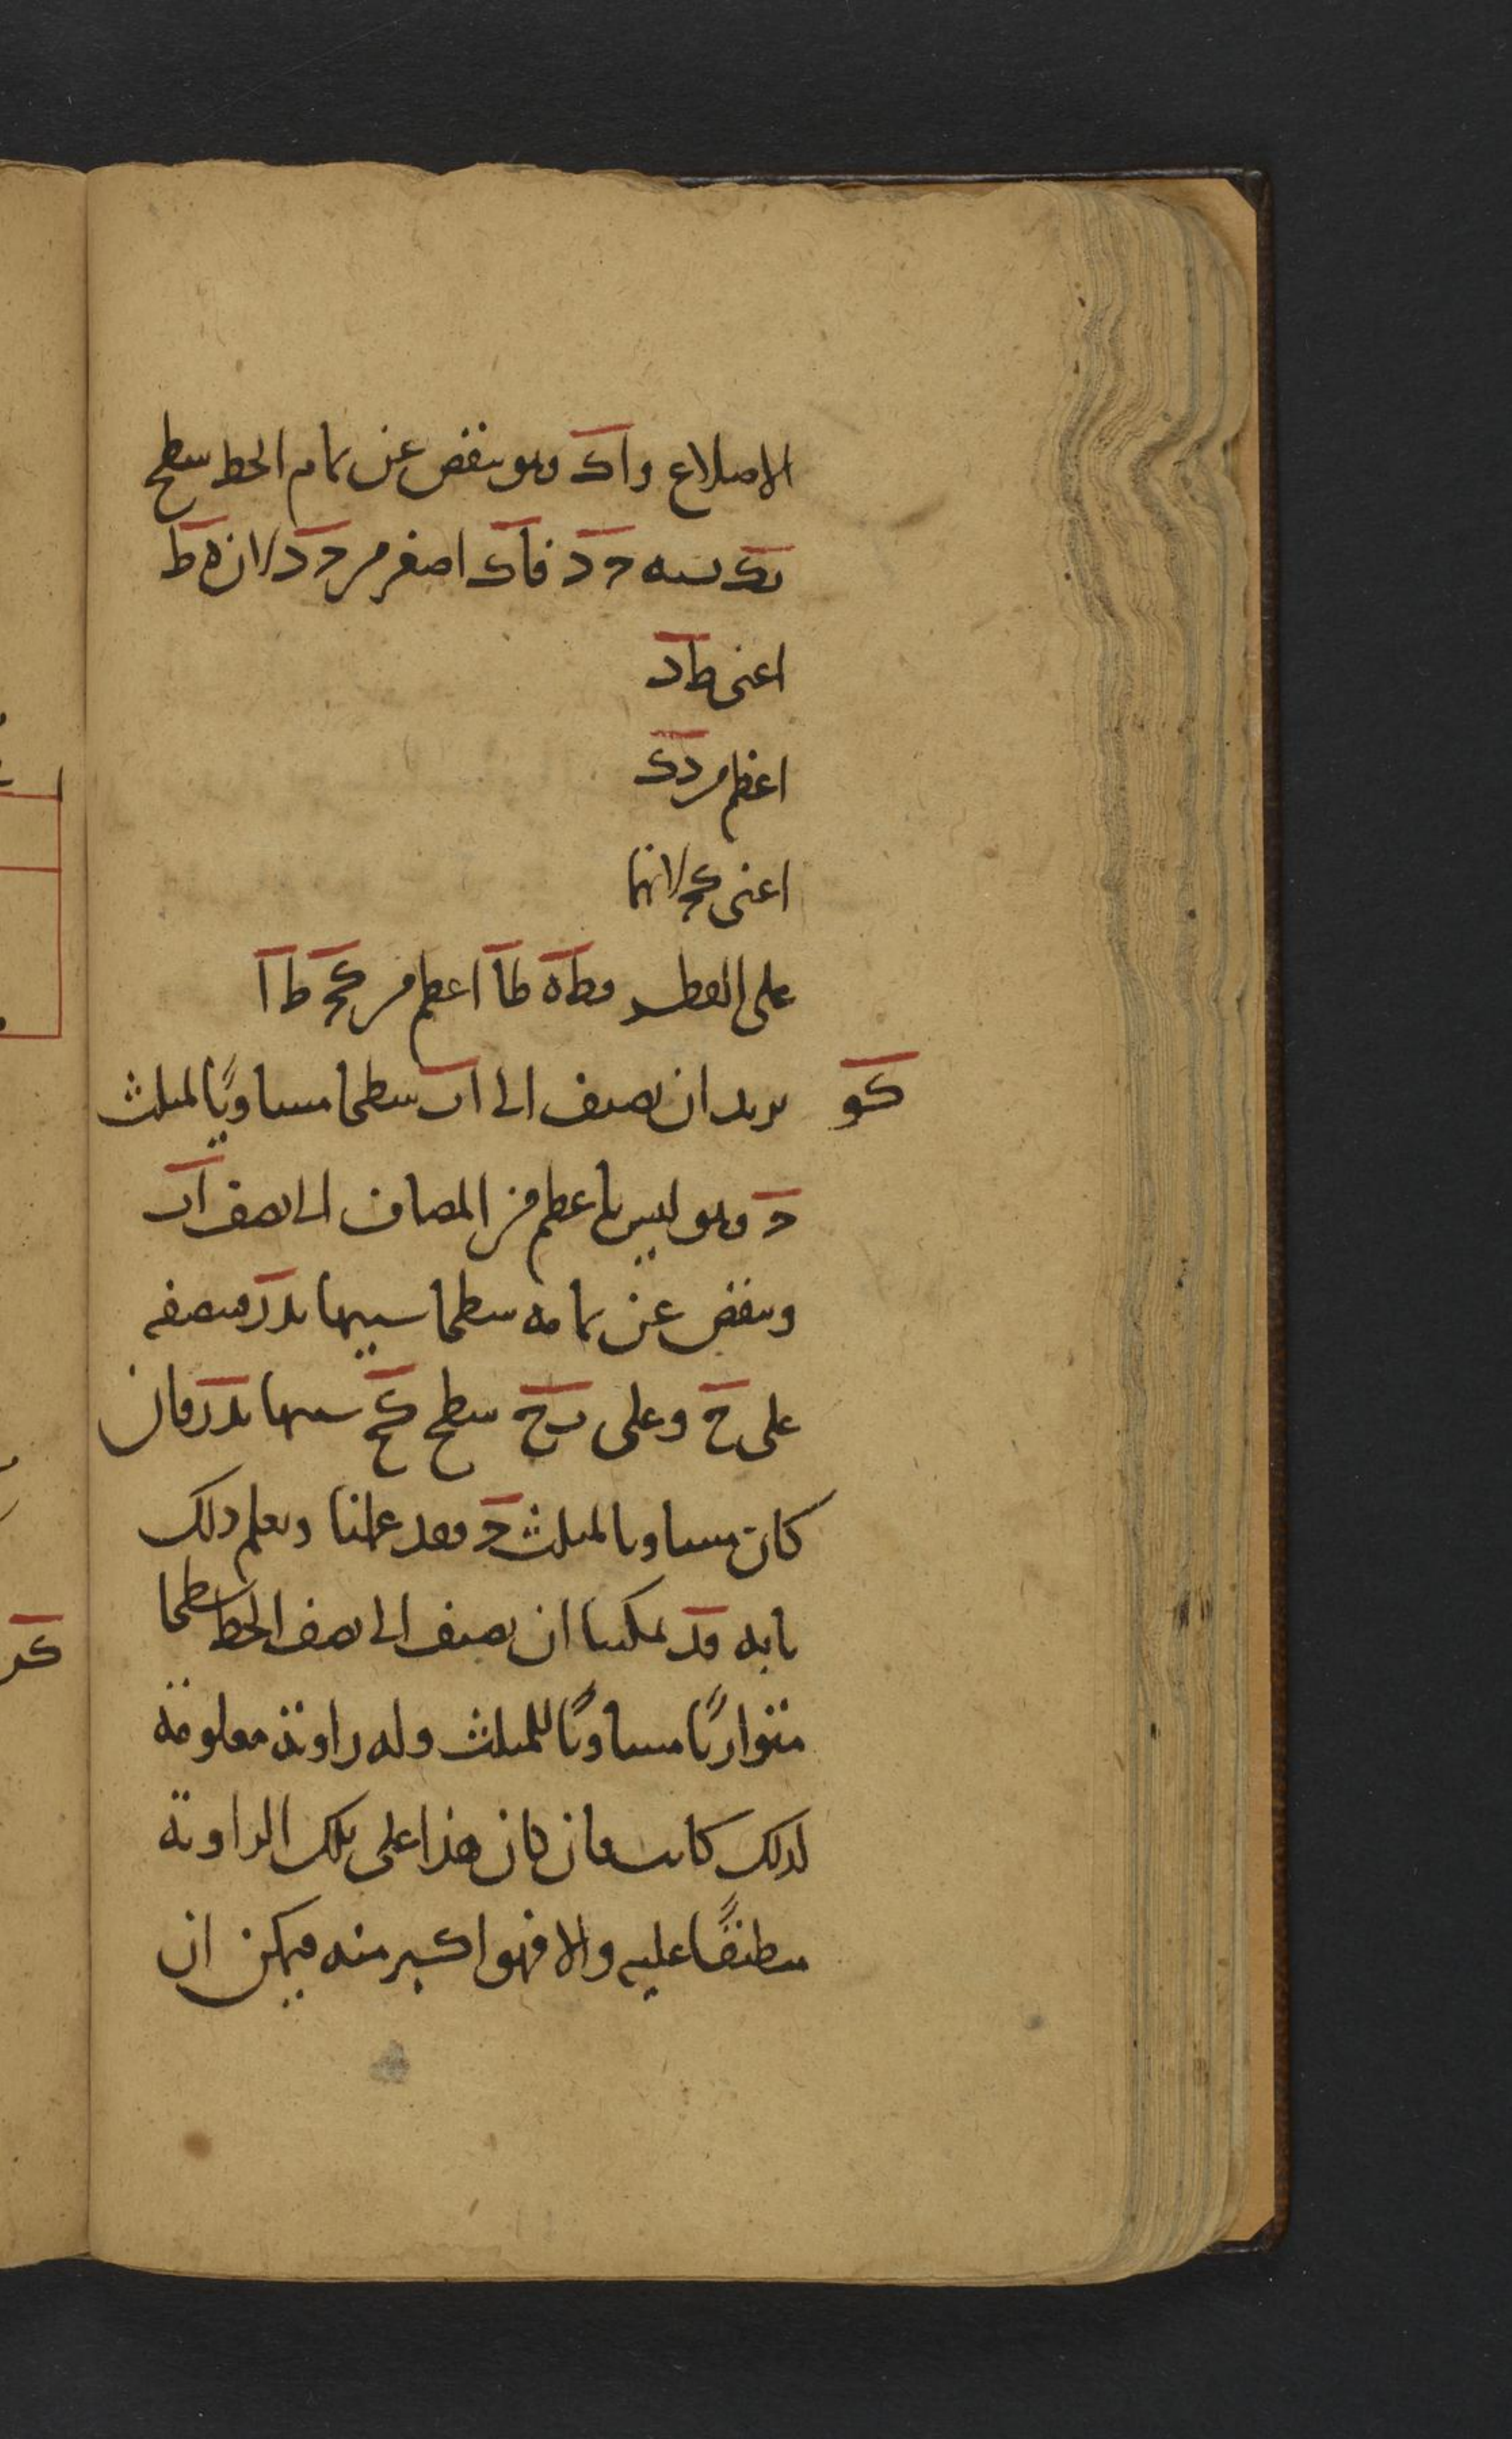 الاضلاع واك وهو ينقص عن تمام الخط سطح
بك يشبه دد فاك اصغر من دد لان ه ط
اعنى ط د
اعظم من د ك
اعنى كح لانهما
على القطر فط ه ط ا اعظم من كح ط ا
كو نريد ان نضيف الى اب سطحا مساويًا لمثلث
د وهو ليس باعظم من المضاف الى نصف اب
وينقص عن تمامه سطحا شبيها بدر فننصفه
على ح وعلى ب ح سطح كح شبيها بدر فان
كان مساويا لمثلث د فقد عملنا ونعلم ذلك
بانه قد يمكننا ان نضيف الى نصف الخط سطحا
متوازيًا مساويًا للمثلث وله زاوية معلومة
لذلك كانت فان كان هذا على تلك الزاوية
منطبقًا عليه والا فهو اكبر منه فيمكن ان
كز